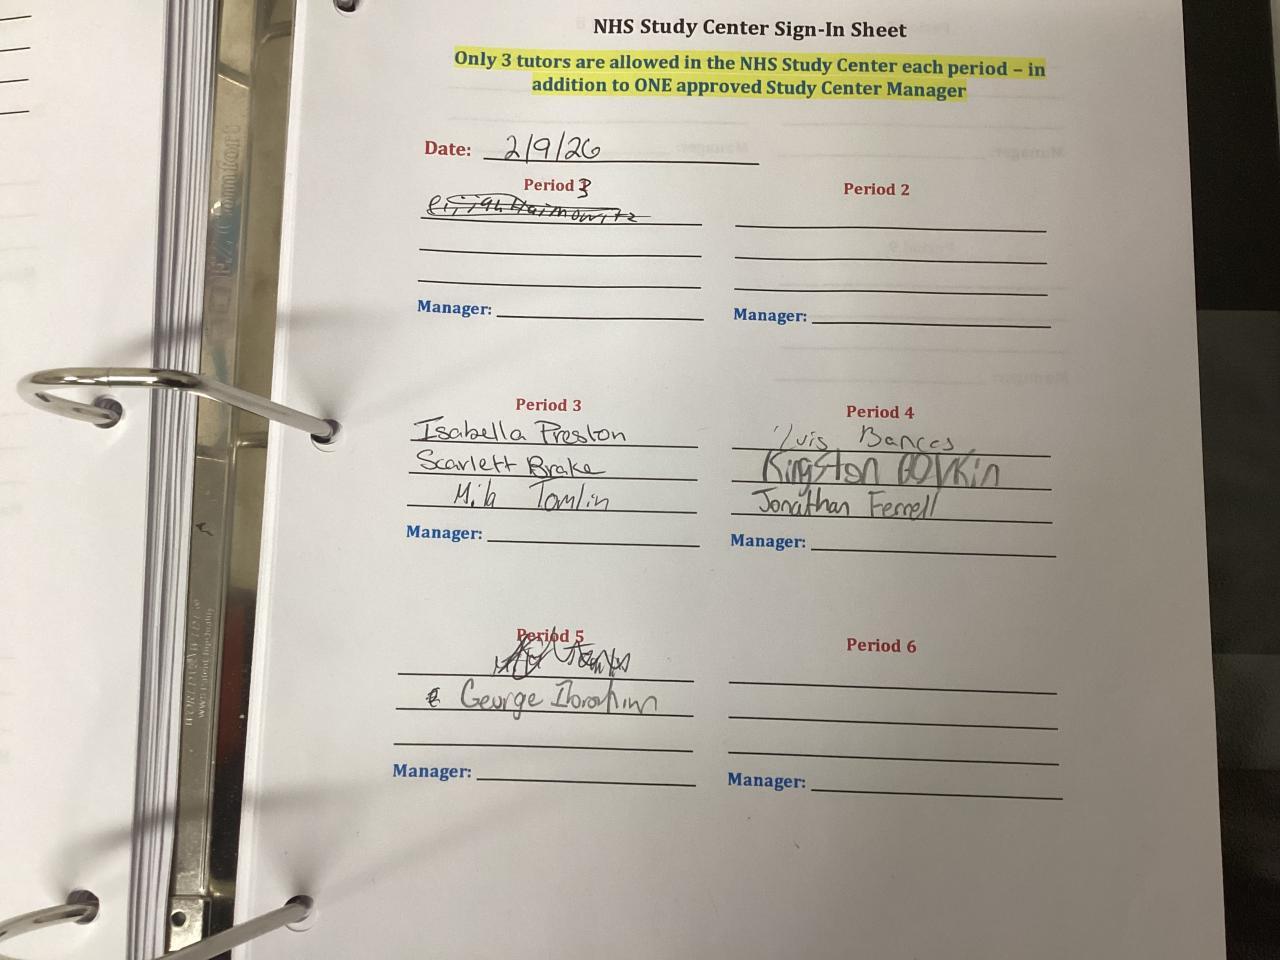 NHS Study Center Sign-In Sheet
Only 3 tutors are allowed in the NHS Study Center each period – in
addition to ONE approved Study Center Manager
Date: 2/9/26
Period 3
Period 2
Manager:
Manager:
Period 3
Isabella Preston
Scarlett Brake
Mila Tomlin
Manager:
Period 4
Luis Bances
Kingston BOYKin
Jonathan Ferrell
Manager:
Period 5
George Ibrahim
Manager:
Period 6
Manager: